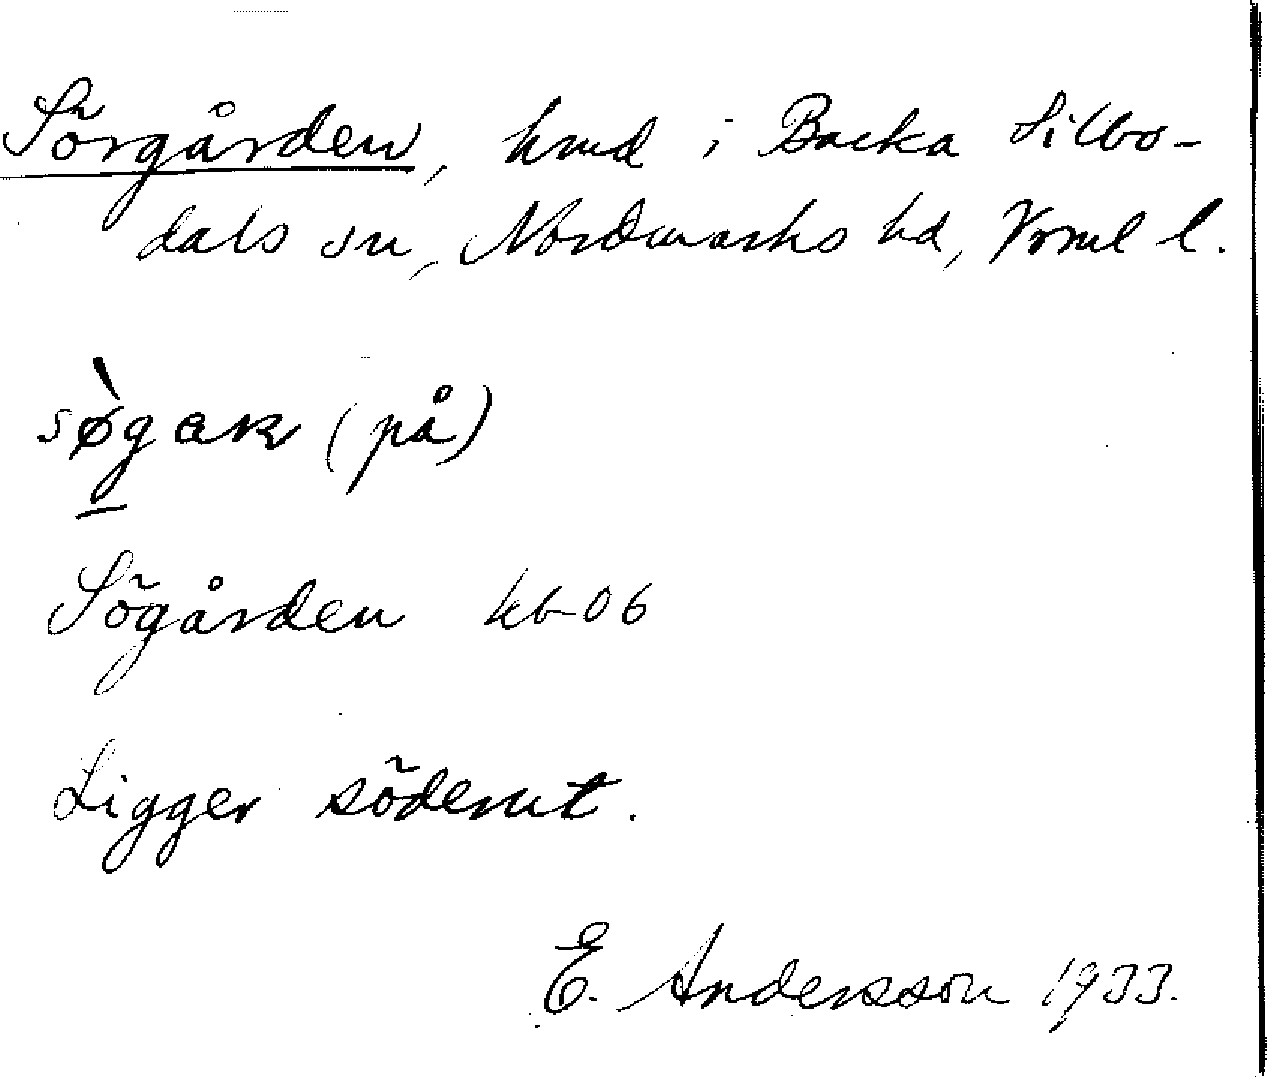 Sörgården, hmd i Backa Silbo-
dals sn, Nordmarks hd, Vrml l.
sø̀gaɳ (på)
Sögården kb 06
Ligger söderut.
E. Andersson 1933.